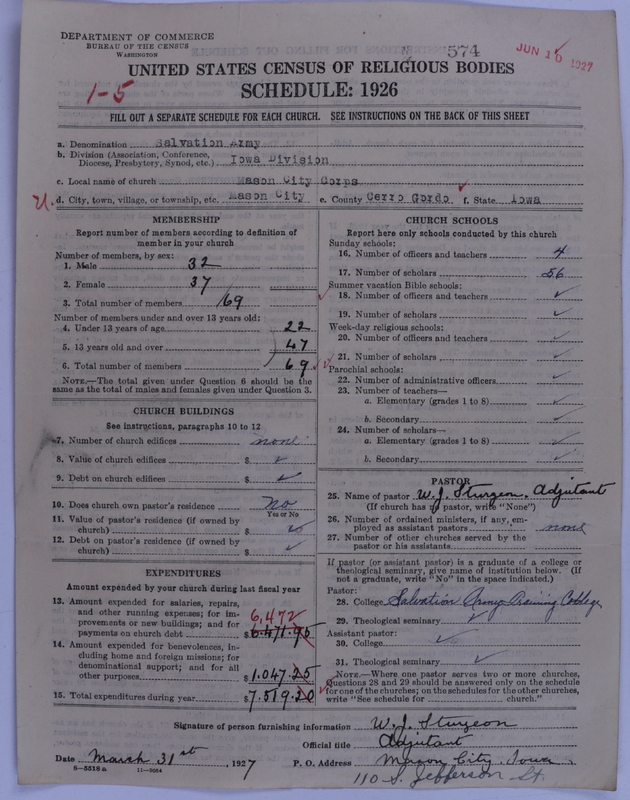 DEPARTMENT OF COMMERCE
BUREAU OF THE CENSUS
WASHINGTON
574
JUN 10 1927
UNITED STATES CENSUS OF RELIGIOUS BODIES
1-5
SCHEDULE: 1926
FILL OUT A SEPARATE SCHEDULE FOR EACH CHURCH. SEE INSTRUCTIONS ON THE BACK OF THIS SHEET
a. Denomination Salvation Army
b. Division (Association, Conference, Diocese, Presbytery, Synod, etc.) Iowa Division
c. Local name of church Mason City Corps
d. City, town, village, or township, etc. Mason City e. County Cerro Gordo f. State Iowa
MEMBERSHIP
Report number of members according to definition of
member in your church
Number of members, by sex:
1. Male 32
2. Female 37
3. Total number of members 69
Number of members under and over 13 years old:
4. Under 13 years of age 22
5. 13 years old and over 47
6. Total number of members 69
NOTE.—The total given under Question 6 should be the
same as the total of males and females given under Question 3.
CHURCH BUILDINGS
See instructions, paragraphs 10 to 12
7. Number of church edifices none
8. Value of church edifices $ ✓
9. Debt on church edifices $ ✓
10. Does church own pastor's residence No
Yes or No
11. Value of pastor's residence (if owned by
church) $ ✓
12. Debt on pastor's residence (if owned by
church) $ ✓
EXPENDITURES
Amount expended by your church during last fiscal year
13. Amount expended for salaries, repairs,
and other running expenses; for im-
provements or new buildings; and for
payments on church debt $ 6,471.95
6,472
14. Amount expended for benevolences, in-
cluding home and foreign missions; for
denominational support; and for all
other purposes $ 1.047.25
15. Total expenditures during year $ 7.519.20
CHURCH SCHOOLS
Report here only schools conducted by this church
Sunday schools:
16. Number of officers and teachers 4
17. Number of scholars 56
Summer vacation Bible schools:
18. Number of officers and teachers ✓
19. Number of scholars ✓
Week-day religious schools:
20. Number of officers and teachers ✓
21. Number of scholars ✓
Parochial schools:
22. Number of administrative officers ✓
23. Number of teachers—
a. Elementary (grades 1 to 8) ✓
b. Secondary ✓
24. Number of scholars—
a. Elementary (grades 1 to 8) ✓
b. Secondary ✓
PASTOR
25. Name of pastor W. J. Sturgeon. Adjutant
(If church has no pastor, write "None")
26. Number of ordained ministers, if any, em-
ployed as assistant pastors none
27. Number of other churches served by the
pastor or his assistants
If pastor (or assistant pastor) is a graduate of a college or
theological seminary, give name of institution below. (If
not a graduate, write "No" in the space indicated.)
Pastor:
28. College Salvation Army Training College
29. Theological seminary ✓
Assistant pastor:
30. College ✓
31. Theological seminary ✓
NOTE.—Where one pastor serves two or more churches,
Questions 28 and 29 should be answered only on the schedule
for one of the churches; on the schedules for the other churches,
write "See schedule for church."
Signature of person furnishing information W. J. Sturgeon
Official title Adjutant
Date March 31st, 1927 P. O. Address Mason City, Iowa
8—5518a 11—9054
110 S. Jefferson St.